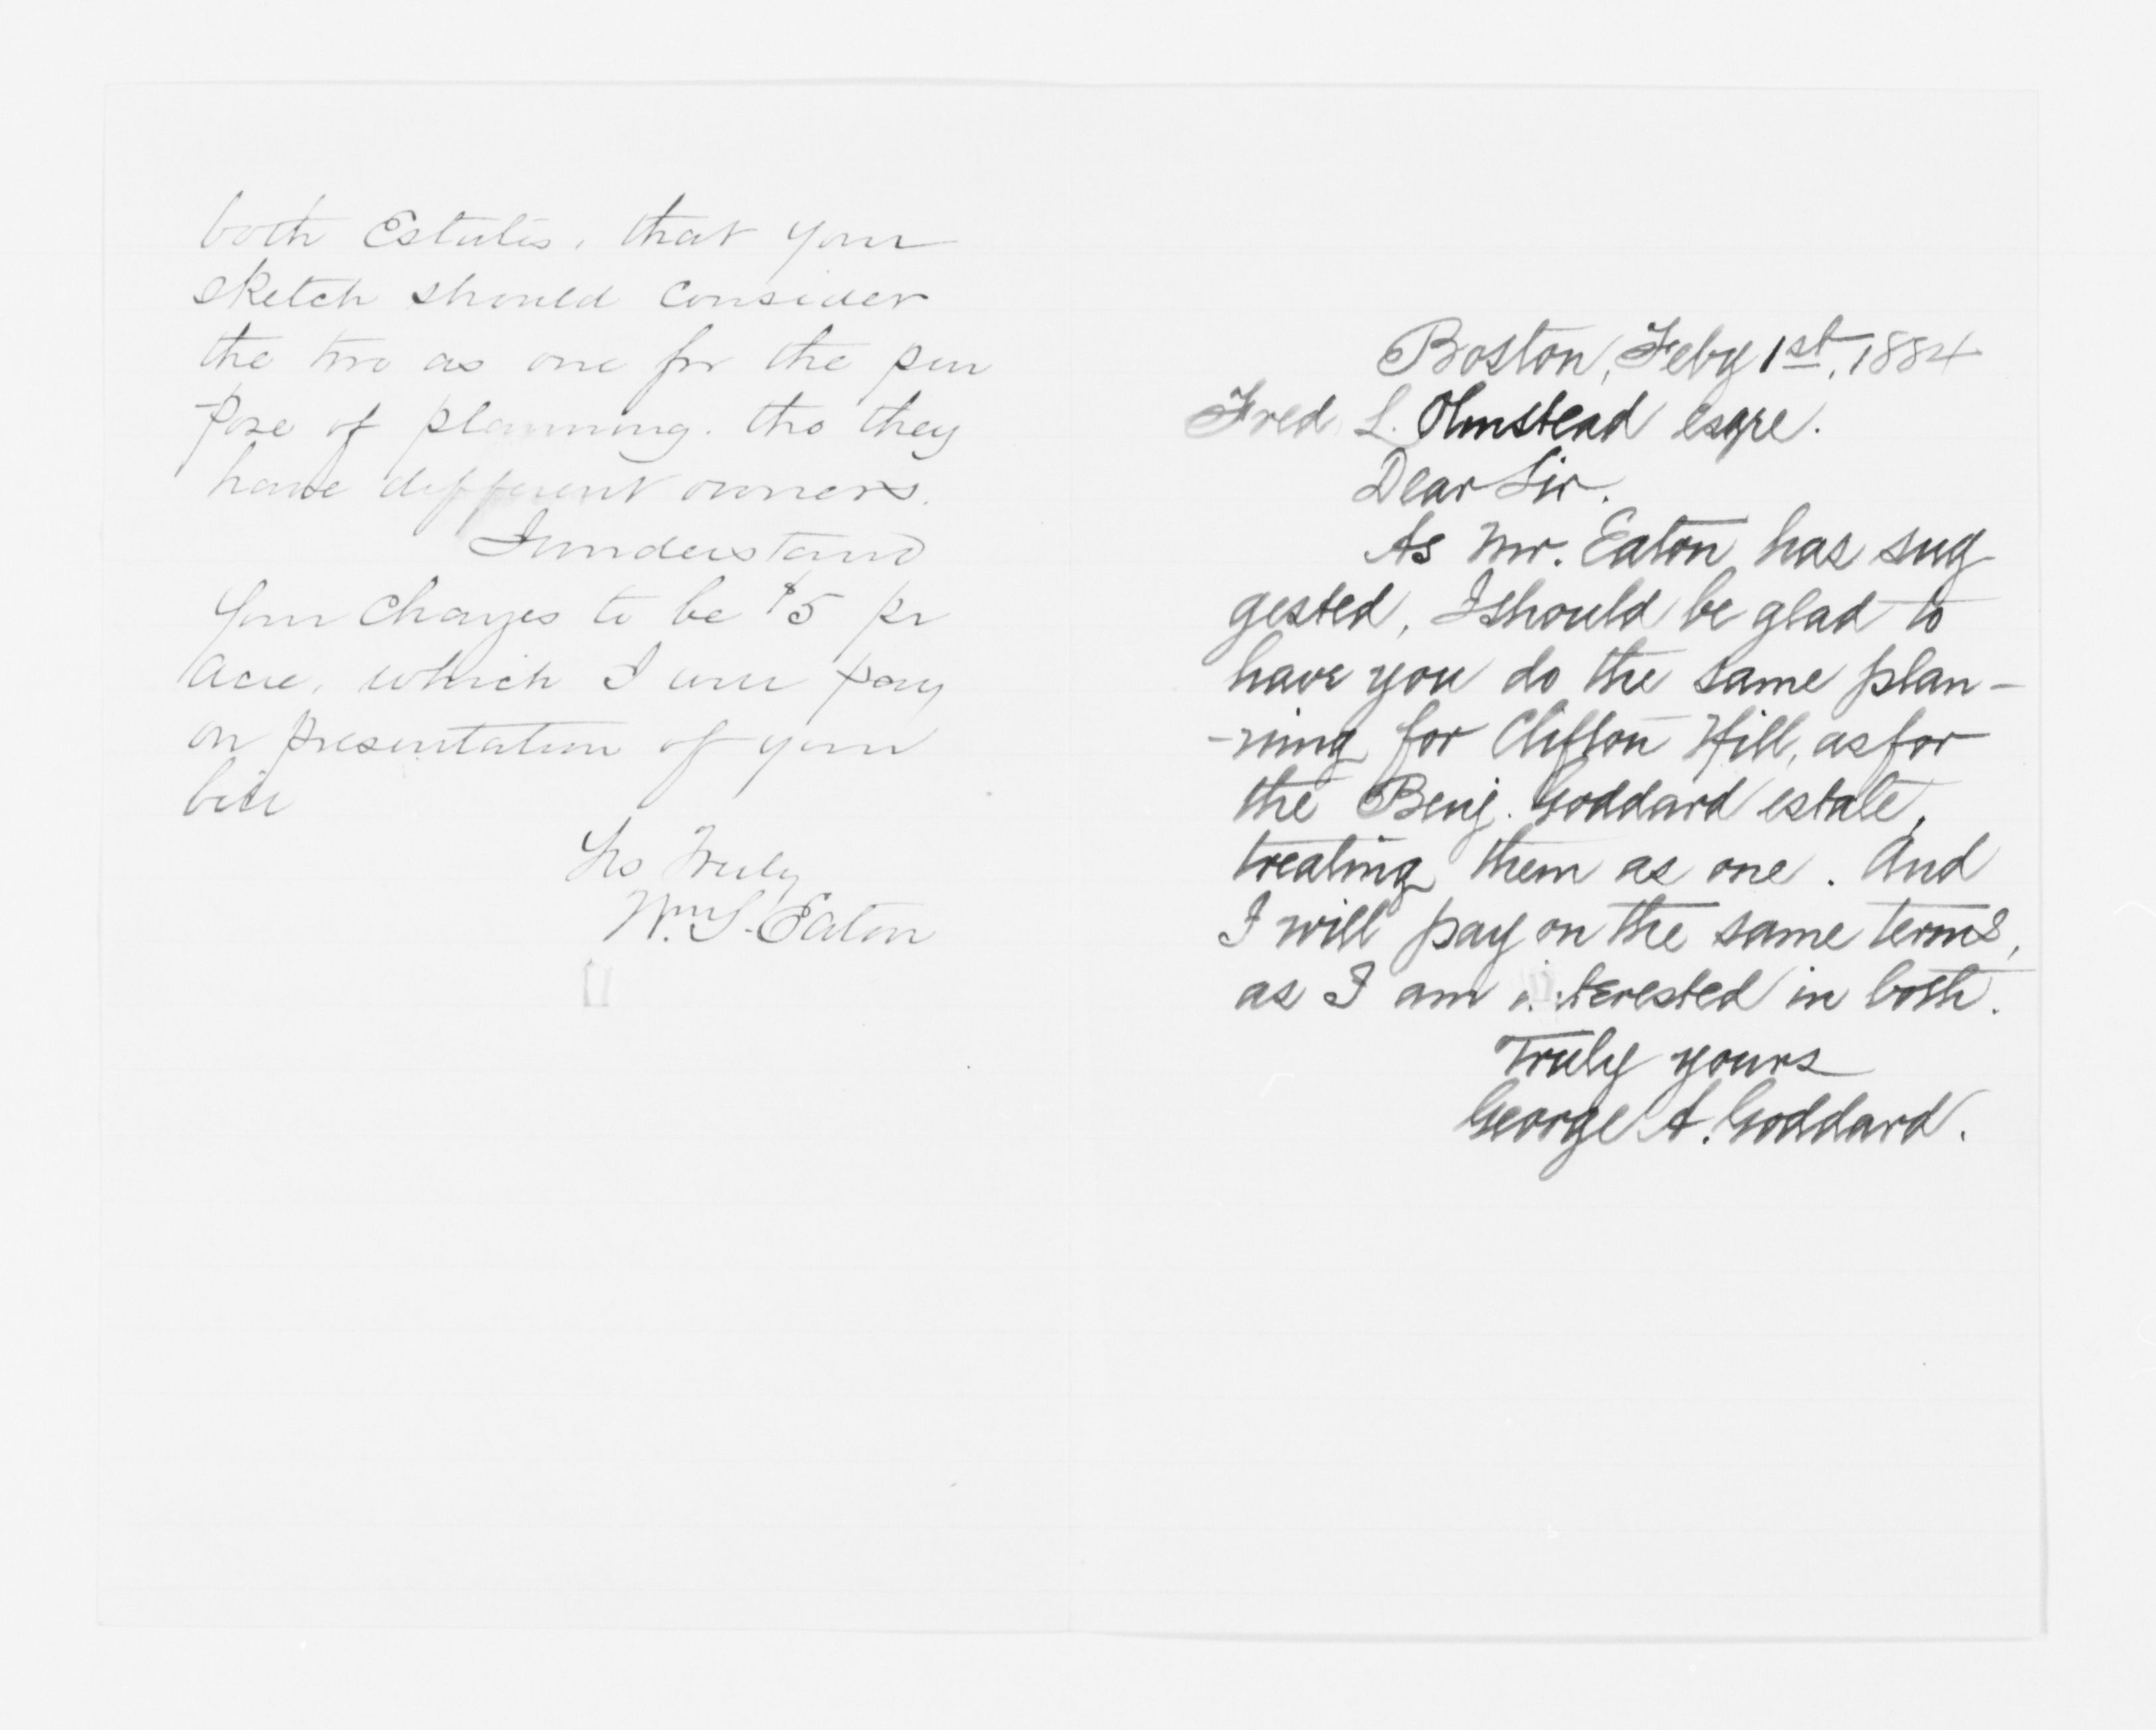 both Estates, that your
sketch should consider
the two as one for the pur
-pose of planning. tho they
have different owners.
I understand
Your Charges to be $5 pr
acre, which I will pay
on presentation of your
bill
Yrs Truly
Wm. S. Eaton
Boston, Feby 1st, 1884
Fred L. Olmstead esqre.
Dear Sir.
As Mr. Eaton has sug
gested, I should be glad to
have you do the same plan-
-ning for Clifton Hill, as for
the Benj. Goddard estate,
treating them as one. And
I will pay on the same terms,
as I am interested in both.
Truly yours
George A. Goddard.